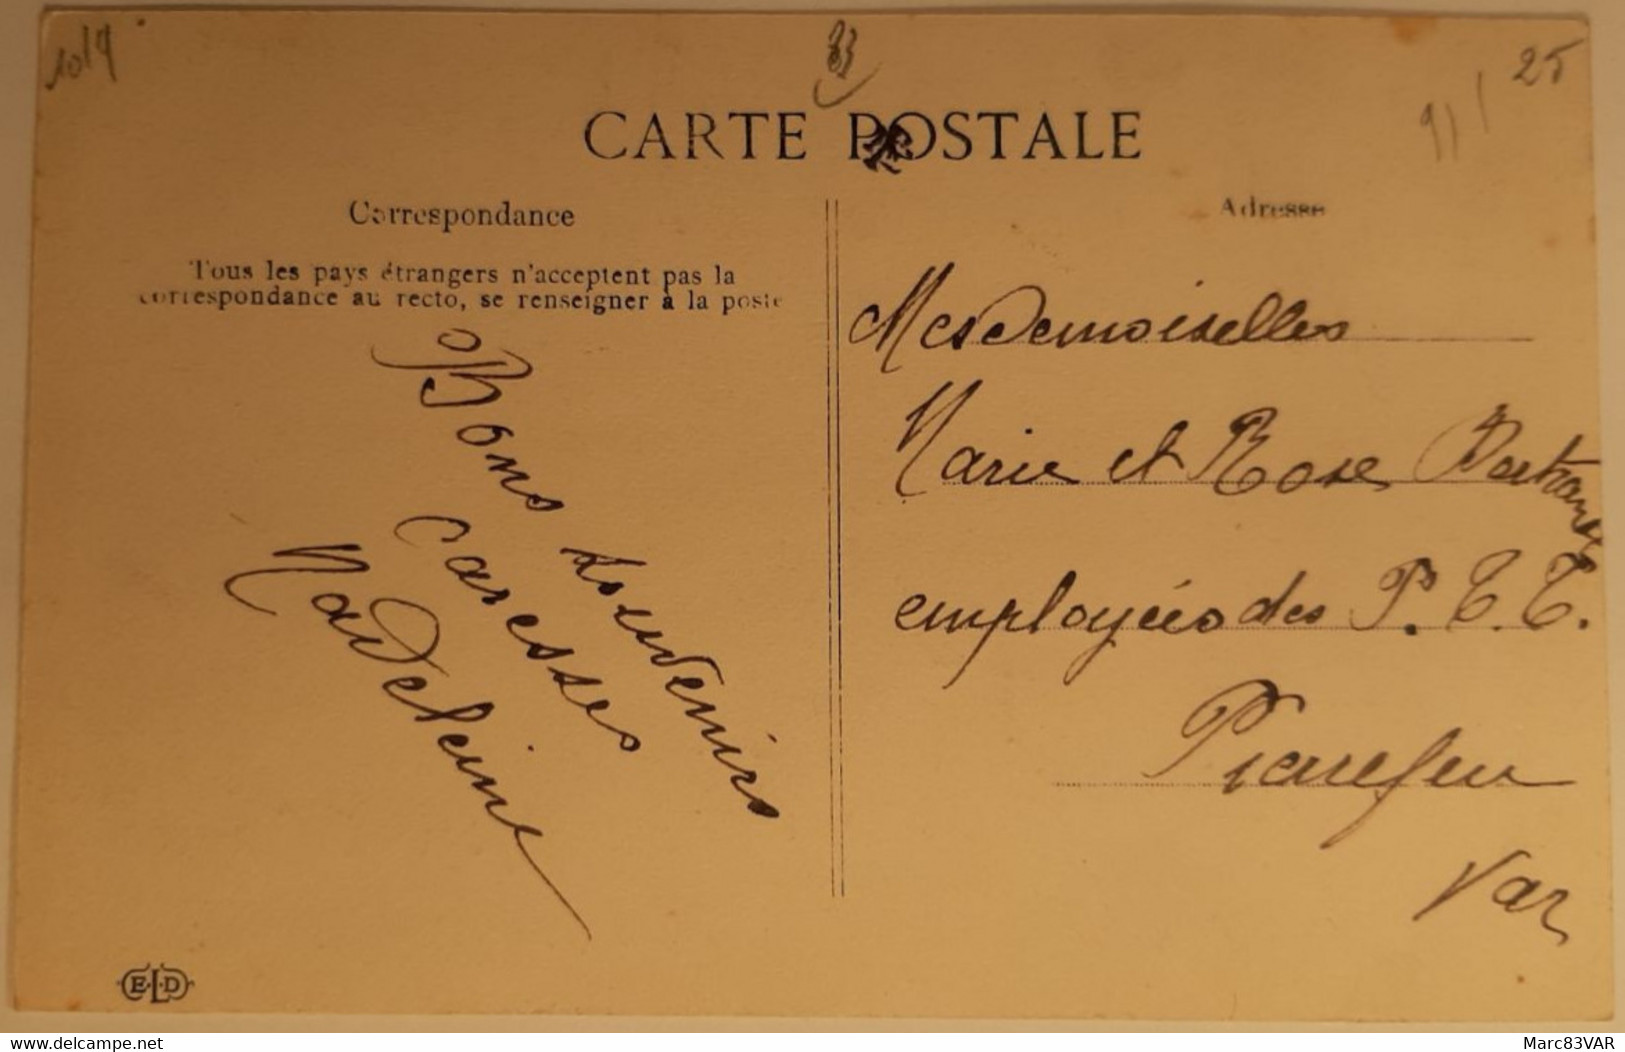 25
83
CARTE POSTALE
Correspondance
Tous les pays étrangers n'acceptent pas la
correspondance au recto, se renseigner à la poste
Bons souvenirs
caresses
Madeleine
E.L.D
Adresse
Mesdemoiselles
Marie et Rose
employées des P.T.T.
Pierrefeu
Var
www.delcampe.net
Marc83VAR